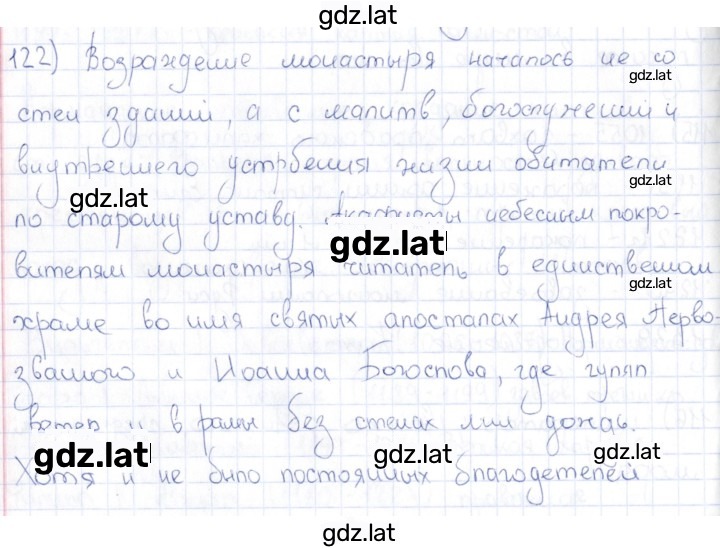 gdz.lat
122) Возраждение монастыря началось не со
gdz.lat
стен зданий, а с малитв, богослужений и
внутреннего устрбения жизни обитатели
gdz.lat
gdz.lat
по старому уставу. небесным покро-
gdz.lat
вителям монастыря читатель в единственном
gdz.lat
храме во имя святых апосталах Андрея Перво-
званного и Иоанна Богослова, где гулял
gdz.lat
и в рамы без стенах лил дождь.
gdz.lat
gdz.lat
Хотя и не было постоянных благодетелей
gdz.lat